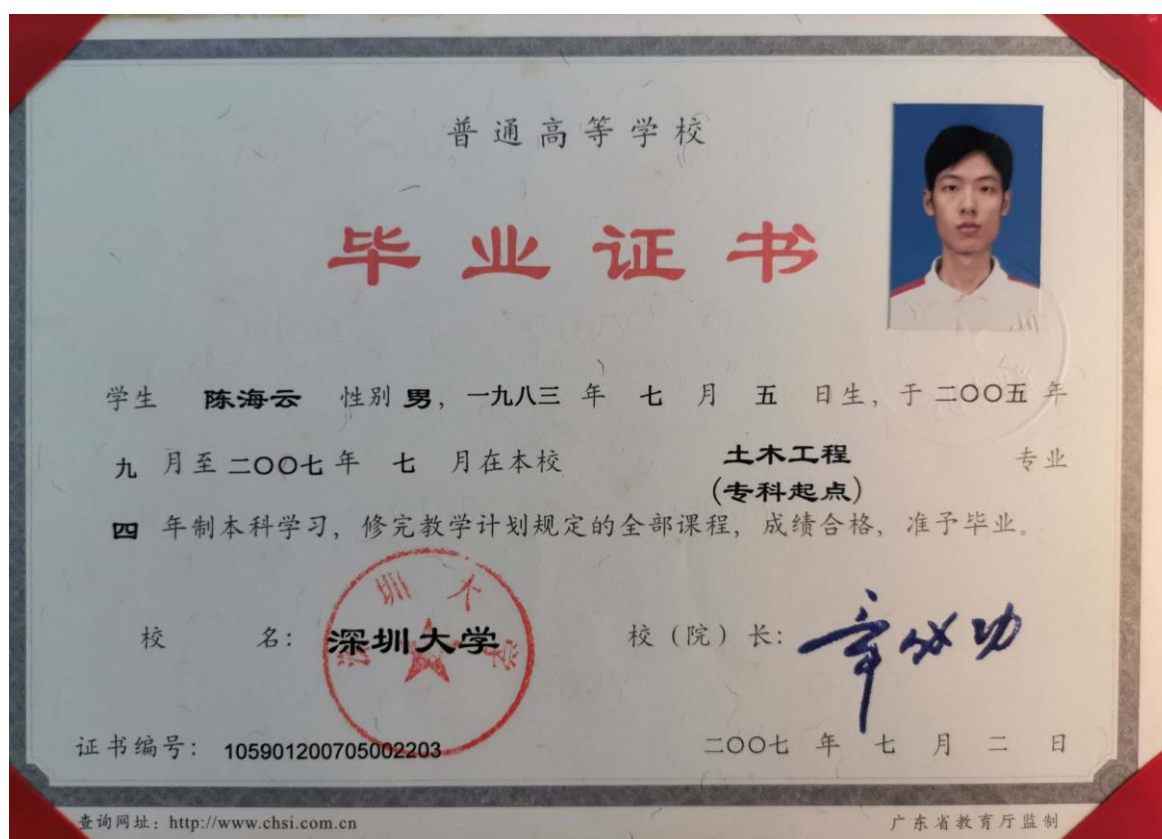 普通高等学校
毕业证书
学生 陈海云 性别 男, 一九八三 年 七 月 五 日生, 于 二〇〇五 年
九 月至 二〇〇七 年 七 月在本校 土木工程 专业
(专科起点)
四 年制本科学习, 修完教学计划规定的全部课程, 成绩合格, 准予毕业。
校 名: 深圳大学 校 (院) 长: 章必功
深圳大学
证书编号: 105901200705002203 二〇〇七 年 七 月 二 日
查询网址: http://www.chsi.com.cn 广东省教育厅监制